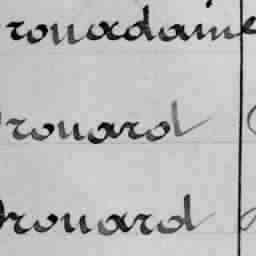 rouadaine
rouard
rouard